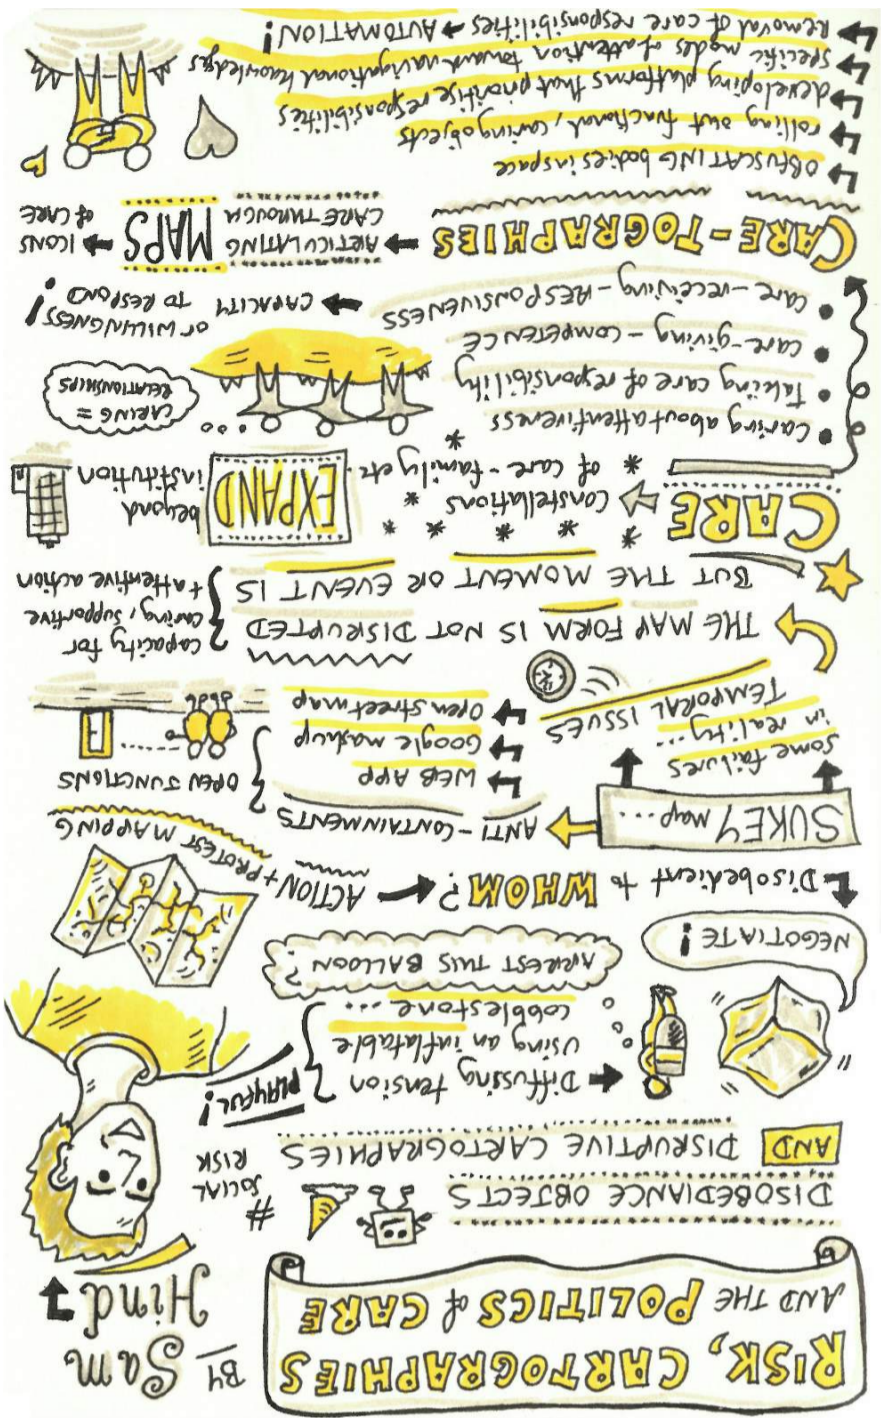 RISK, CARTOGRAPHIES
AND THE POLITICS of CARE
BY Sam
Hind
DISOBEDIANCE OBJECTS
AND DISRUPTIVE CARTOGRAPHIES
# SOCIAL
RISK
Diffusing tension
using an inflatable
cobblestone ...
PLAYFUL!
ARREST THIS BALLOON?
NEGOTIATE!
Disobedient to WHOM?
ACTION + PROTEST MAPPING
SUKEY map...
ANTI-CONTAINMENTS
WEB APP
Google mashup
Open street map
OPEN JUNCTIONS
some failures
in reality...
TEMPORAL ISSUES
THE MAP FORM IS NOT DISRUPTED
BUT THE MOMENT OR EVENT IS
capacity for
caring, supportive
+ attentive action
CARE
Constellations
of care - family etc.
EXPAND
beyond
institution
caring about attentiveness
Taking care of responsibility
care-giving - COMPETENCE
care-receiving - RESPONSIVENESS
CARING =
RELATIONSHIPS
CAPACITY TO RESPOND
or WILLINGNESS!
CARE-TOGRAPHIES
ARTICULATING
CARE THROUGH
MAPS
ICONS
of CARE
OBFUSCATING bodies in space
rolling out functional, caring objects
developing platforms that prioritise responsibilities
specific modes of attention toward navigational knowledges
removal of care responsibilities → AUTOMATION!